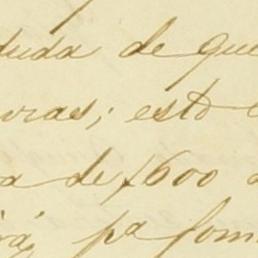 duda de que
uras; esto e
a de 1600 a
irá pa fom